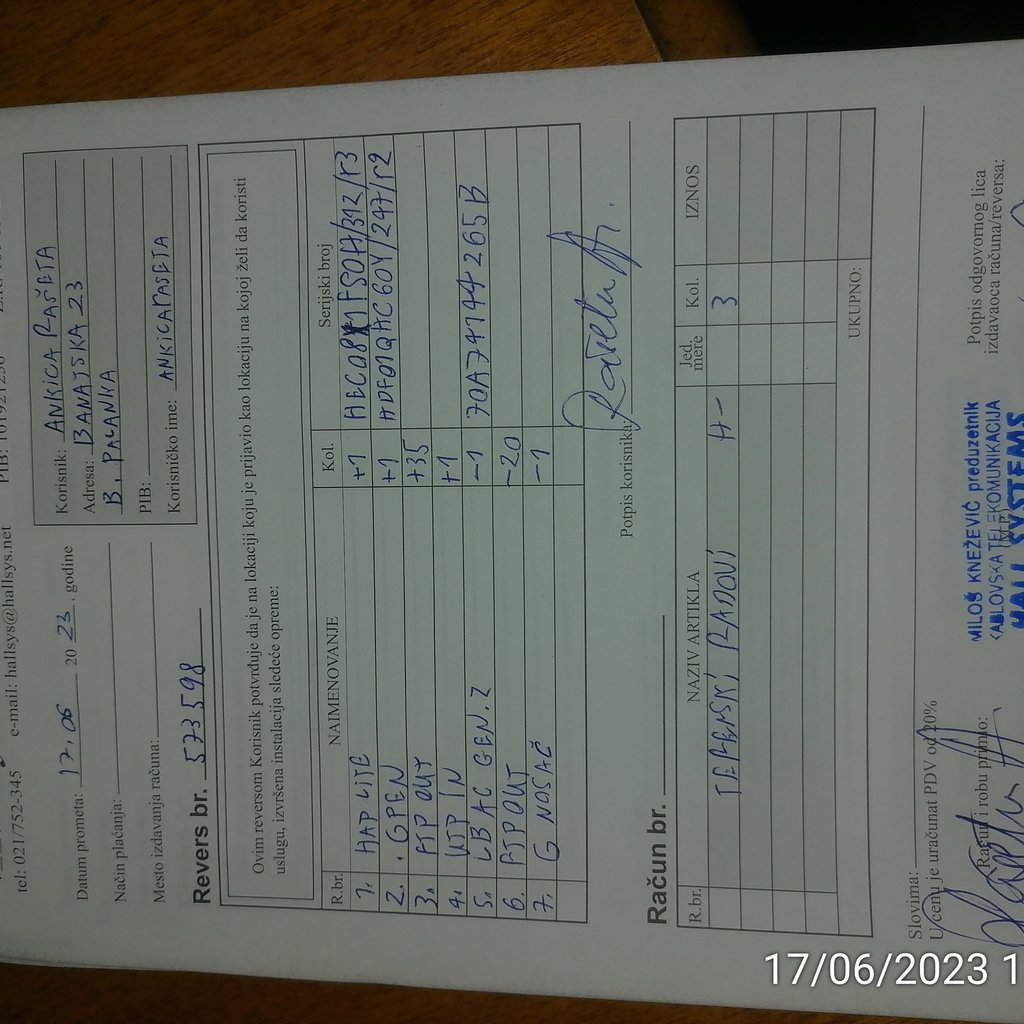 tel: 021/752-345
e-mail: hallsys@hallsys.net
Datum prometa: 17.06 2023. godine
Način plaćanja:
Mesto izdavanja računa:
Korisnik: ANKICA RAŠETA
Adresa: BANATSKA 23
B. PALANKA
PIB:
Korisničko ime: ANKICARASETA
Revers br. 573598
Ovim reversom Korisnik potvrđuje da je na lokaciji koju je prijavio kao lokaciju na kojoj želi da koristi
uslugu, izvršena instalacija sledeće opreme:
R.br. NAIMENOVANJE Kol. Serijski broj
1. HAP LITE +1 /312/r3
2. GPEN +1 /247/r2
3. FTP OUT +35
4. UTP IN +1
5. LB AC GEN.2 -1 70A74144265B
6. FTP OUT -20
7. G NOSAČ -1
Potpis korisnika:
Račun br.
R.br. NAZIV ARTIKLA Jed. mere Kol. IZNOS
TERENSKI RADOVI H- 3
UKUPNO:
Slovima:
U cenu je uračunat PDV od 20%
Račun i robu primio:
MILOŠ KNEŽEVIĆ preduzetnik
KABLOVSKA TELEKOMUNIKACIJA
HALL SYSTEMS
Potpis odgovornog lica
izdavaoca računa/reversa:
17/06/2023 1